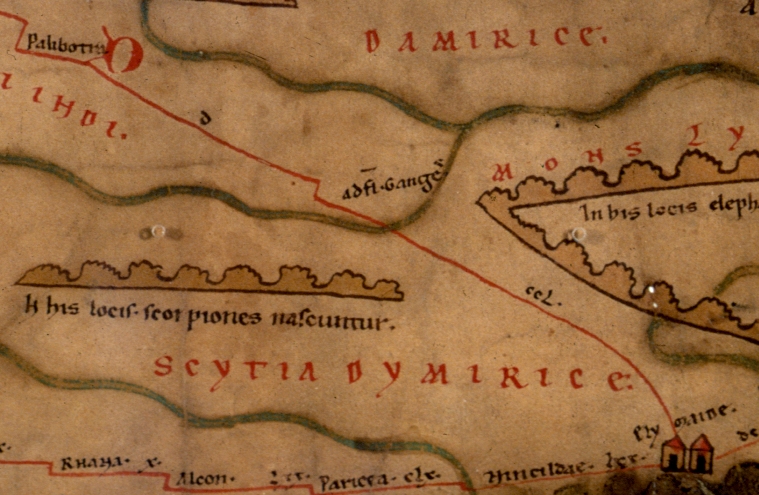 Palibotra
DAMIRICE:
INDI.
d
ad fl. Ganges
MONS LY
In his locis eleph
ccl.
In his locis scorpiones nascuntur.
SCYTIA DYMIRICE:
Elymaide.
Rhana. x.
Alcon.
Parieca. clx.
Nincildae. lxx.